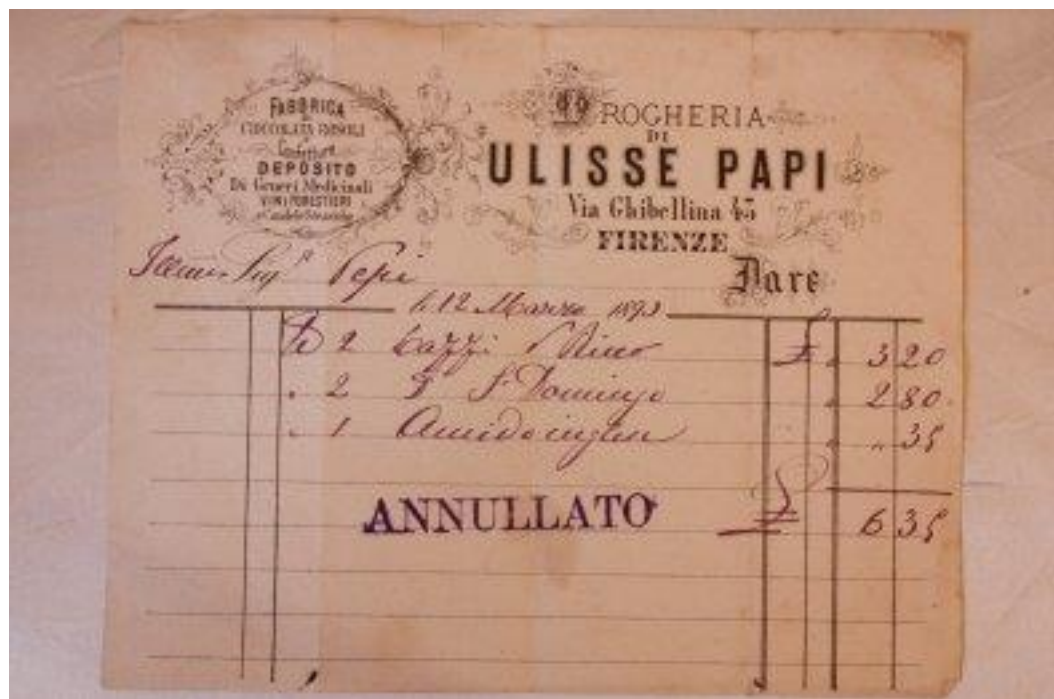 FABBRICA
DI
CIOCCOLATA ROSOLI
Confetture
DEPOSITO
Di Generi Medicinali
VINI FORESTIERI
e Candele Steariche
DROGHERIA
DI
ULISSE PAPI
Via Ghibellina 43
FIRENZE
Illmo Sigr Pepi
Dare
12 Marzo 1893
2 3 20
2 S. Domingo 2 80
1 Amido inglese " 35
ANNULLATO
£ 6 35